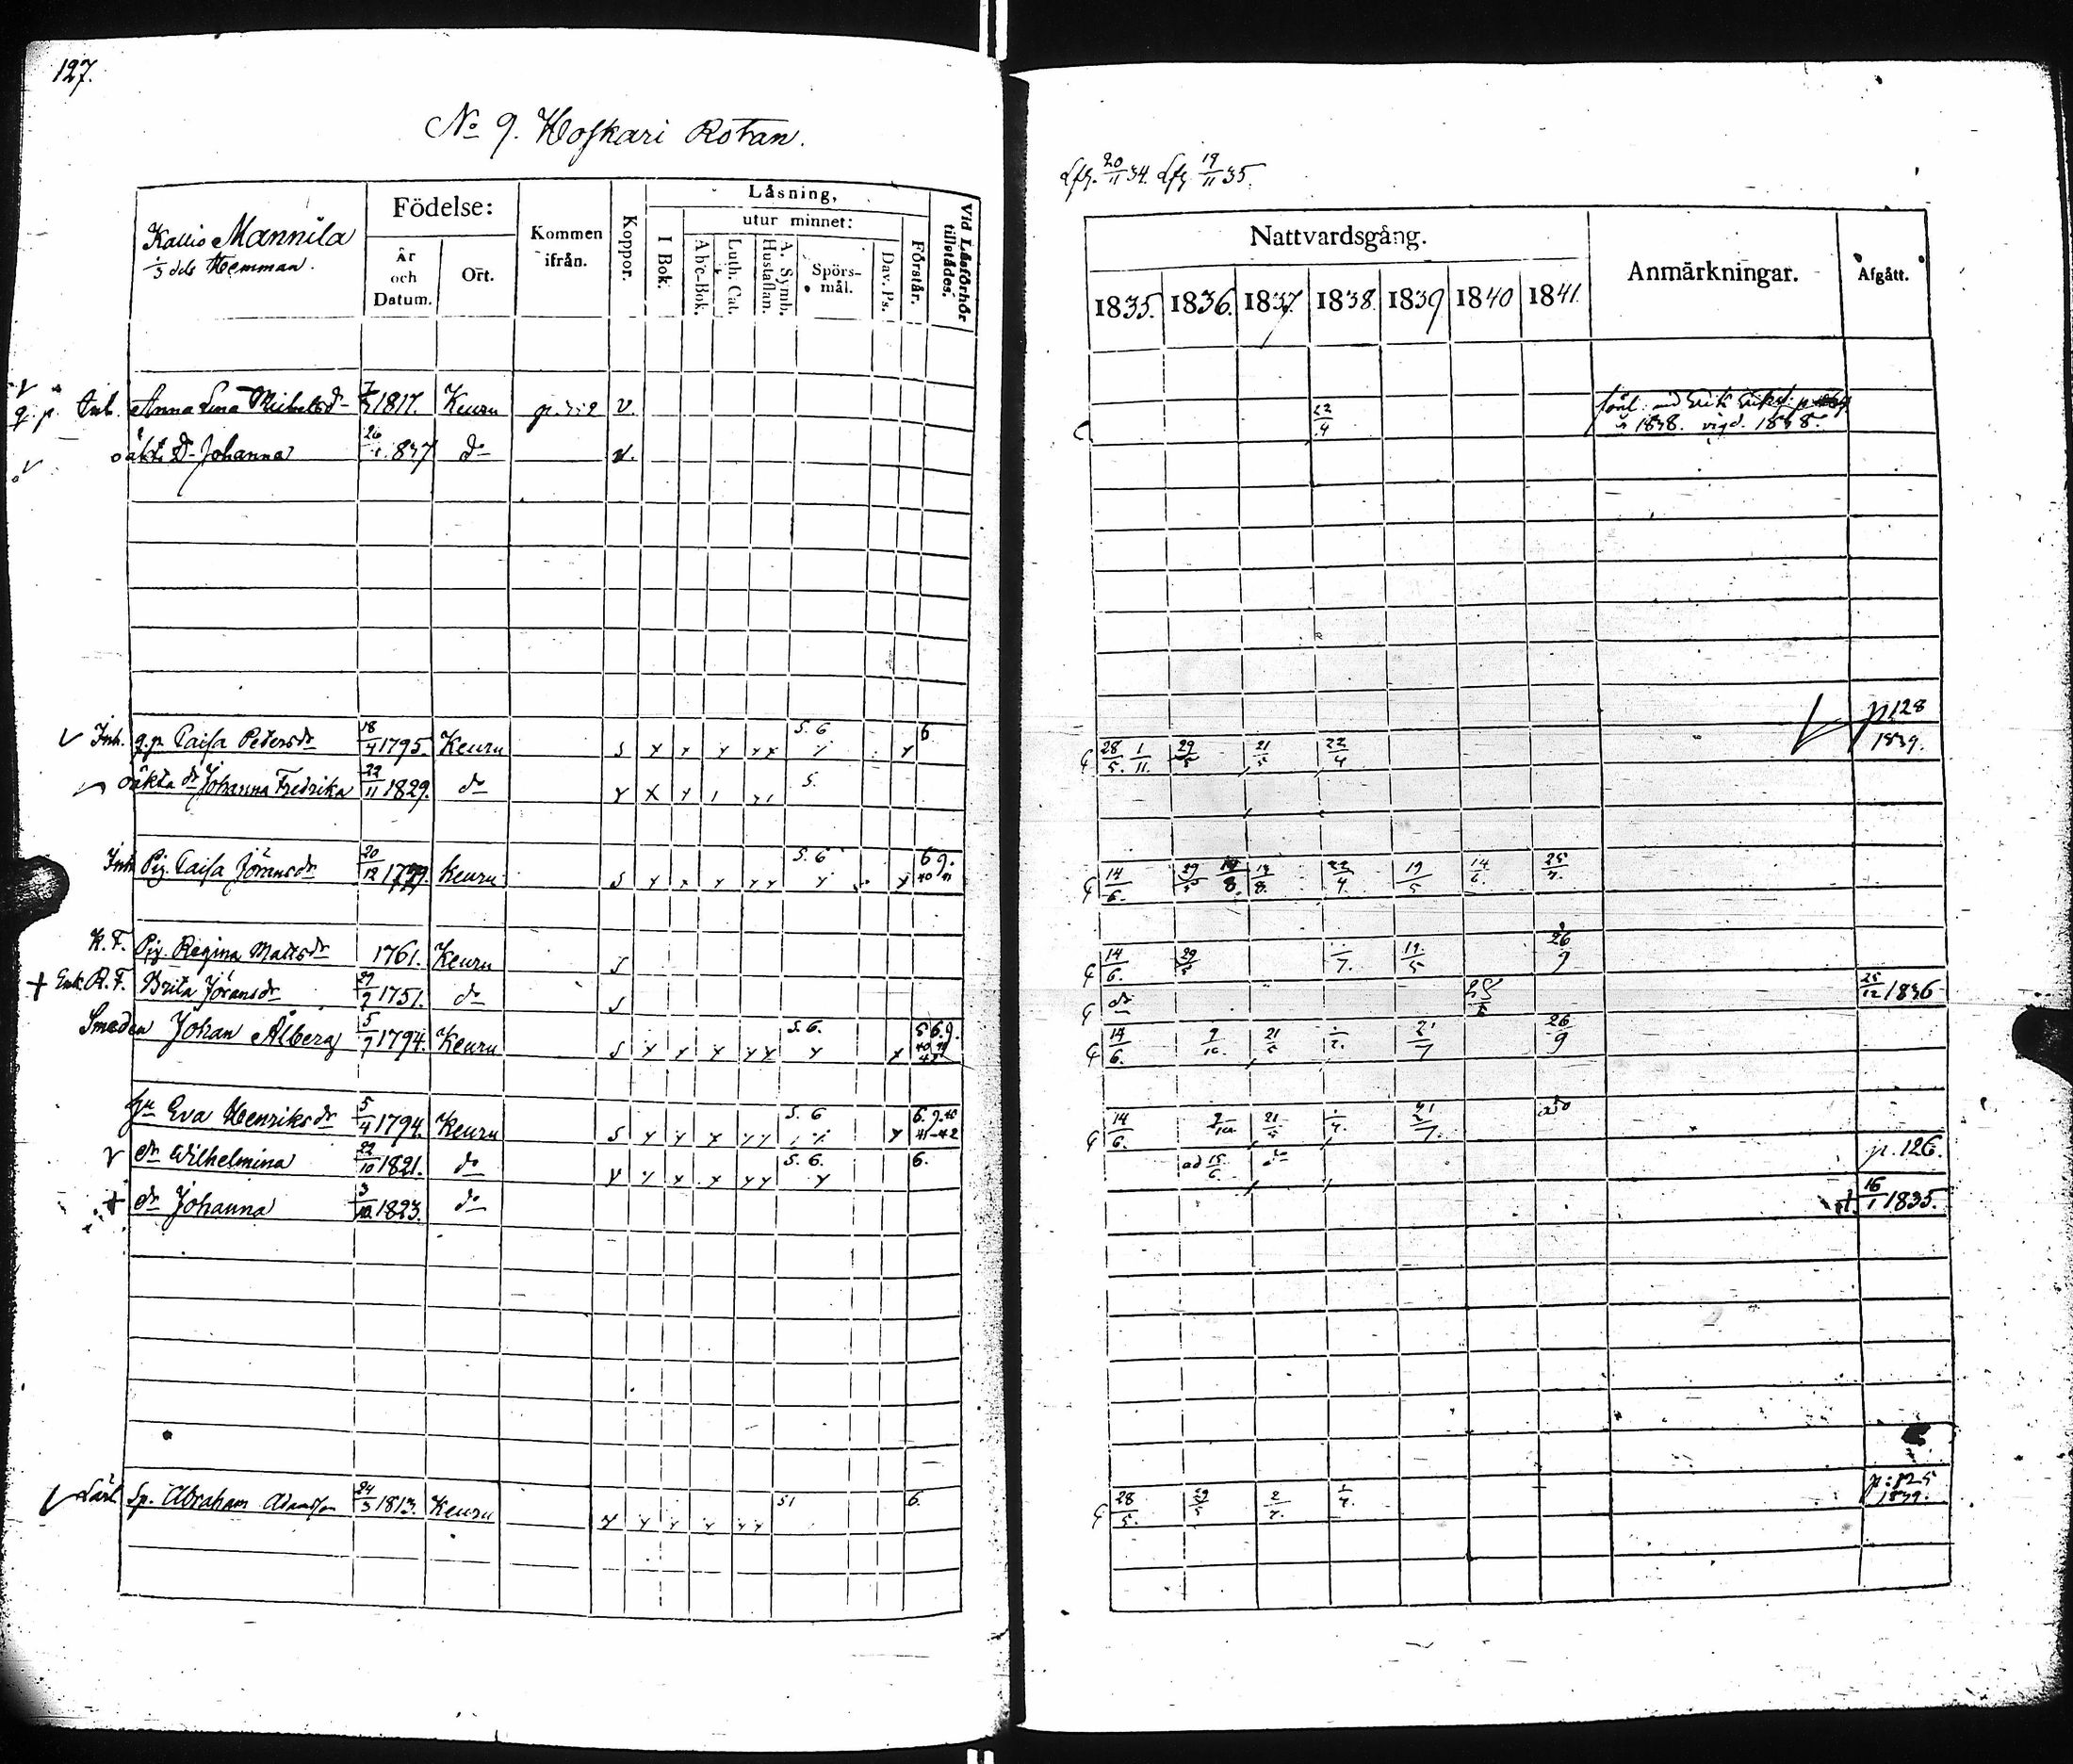 127.
No 9. Hoskari Rotan.
Kallio Mannila
1/3 dels Hemman.
Födelse:
År och Datum.
Ort.
Kommen ifrån.
Koppor.
Läsning,
I Bok.
utur minnet:
Abc-Bok.
Luth. Cat.
A. Symb. Hustaflan.
Spörsmål.
Dav. Ps.
Förstår.
Vid Läsförhör tillstädes.
q. p. Inh. Anna Lena Michelsdr 1817. Keuru v.
oäkta Dr Johanna 837 do v.
Inh. q.p. Caisa Petersdr 18/4 1795. Keuru s 5. 6 6
oäkta dr Johanna Fredrika 22/11 1829. do 5.
Inh Pig. Caisa Jöransdr 20/12 Keuru s 5. 6 6 9. 40 41
K. F. Pig. Regina Mattsdr 1761. Keuru s
+ Enk. R. F. Brita Jöransdr 1751. do s
Smeden Johan Ålberg 5/9 1794. Keuru s 5. 6. 5 6 9.
hu Eva Henriksdr 5/4 1794. Keuru s 5. 6 6. 9. 40 41-42
dr Wilhelmina 22/10 1821. do 5. 6. 6.
+ dr Johanna 3/10 1823. do
Lärl. Sp. Abraham Adamsson 24/3 1813. Keuru 51 6.
Lfg. 20/11 34. Lfg 19/11 35.
Nattvardsgång.
1835. 1836. 1837. 1838. 1839 1840 1841.
Anmärkningar.
Afgått.
22/4 1838. vigd. 1838.
28/5. 1/11. 29/5 21/5 22/4 p. 128 1839.
14/6. 29/5 14/8. 22/4. 19/5 14/6. 25/7.
14/6. 29/5 1/7. 19/5 26/9
do 25/12 1836
14/6. 9/10. 21/5 21/7 26/9
14/6. 9/10 21/5 21/7 do
ad 15/6. do p. 126.
+ 16/1 1835.
28/5. 29/5 2/7. 1/7. p: 125 1839.